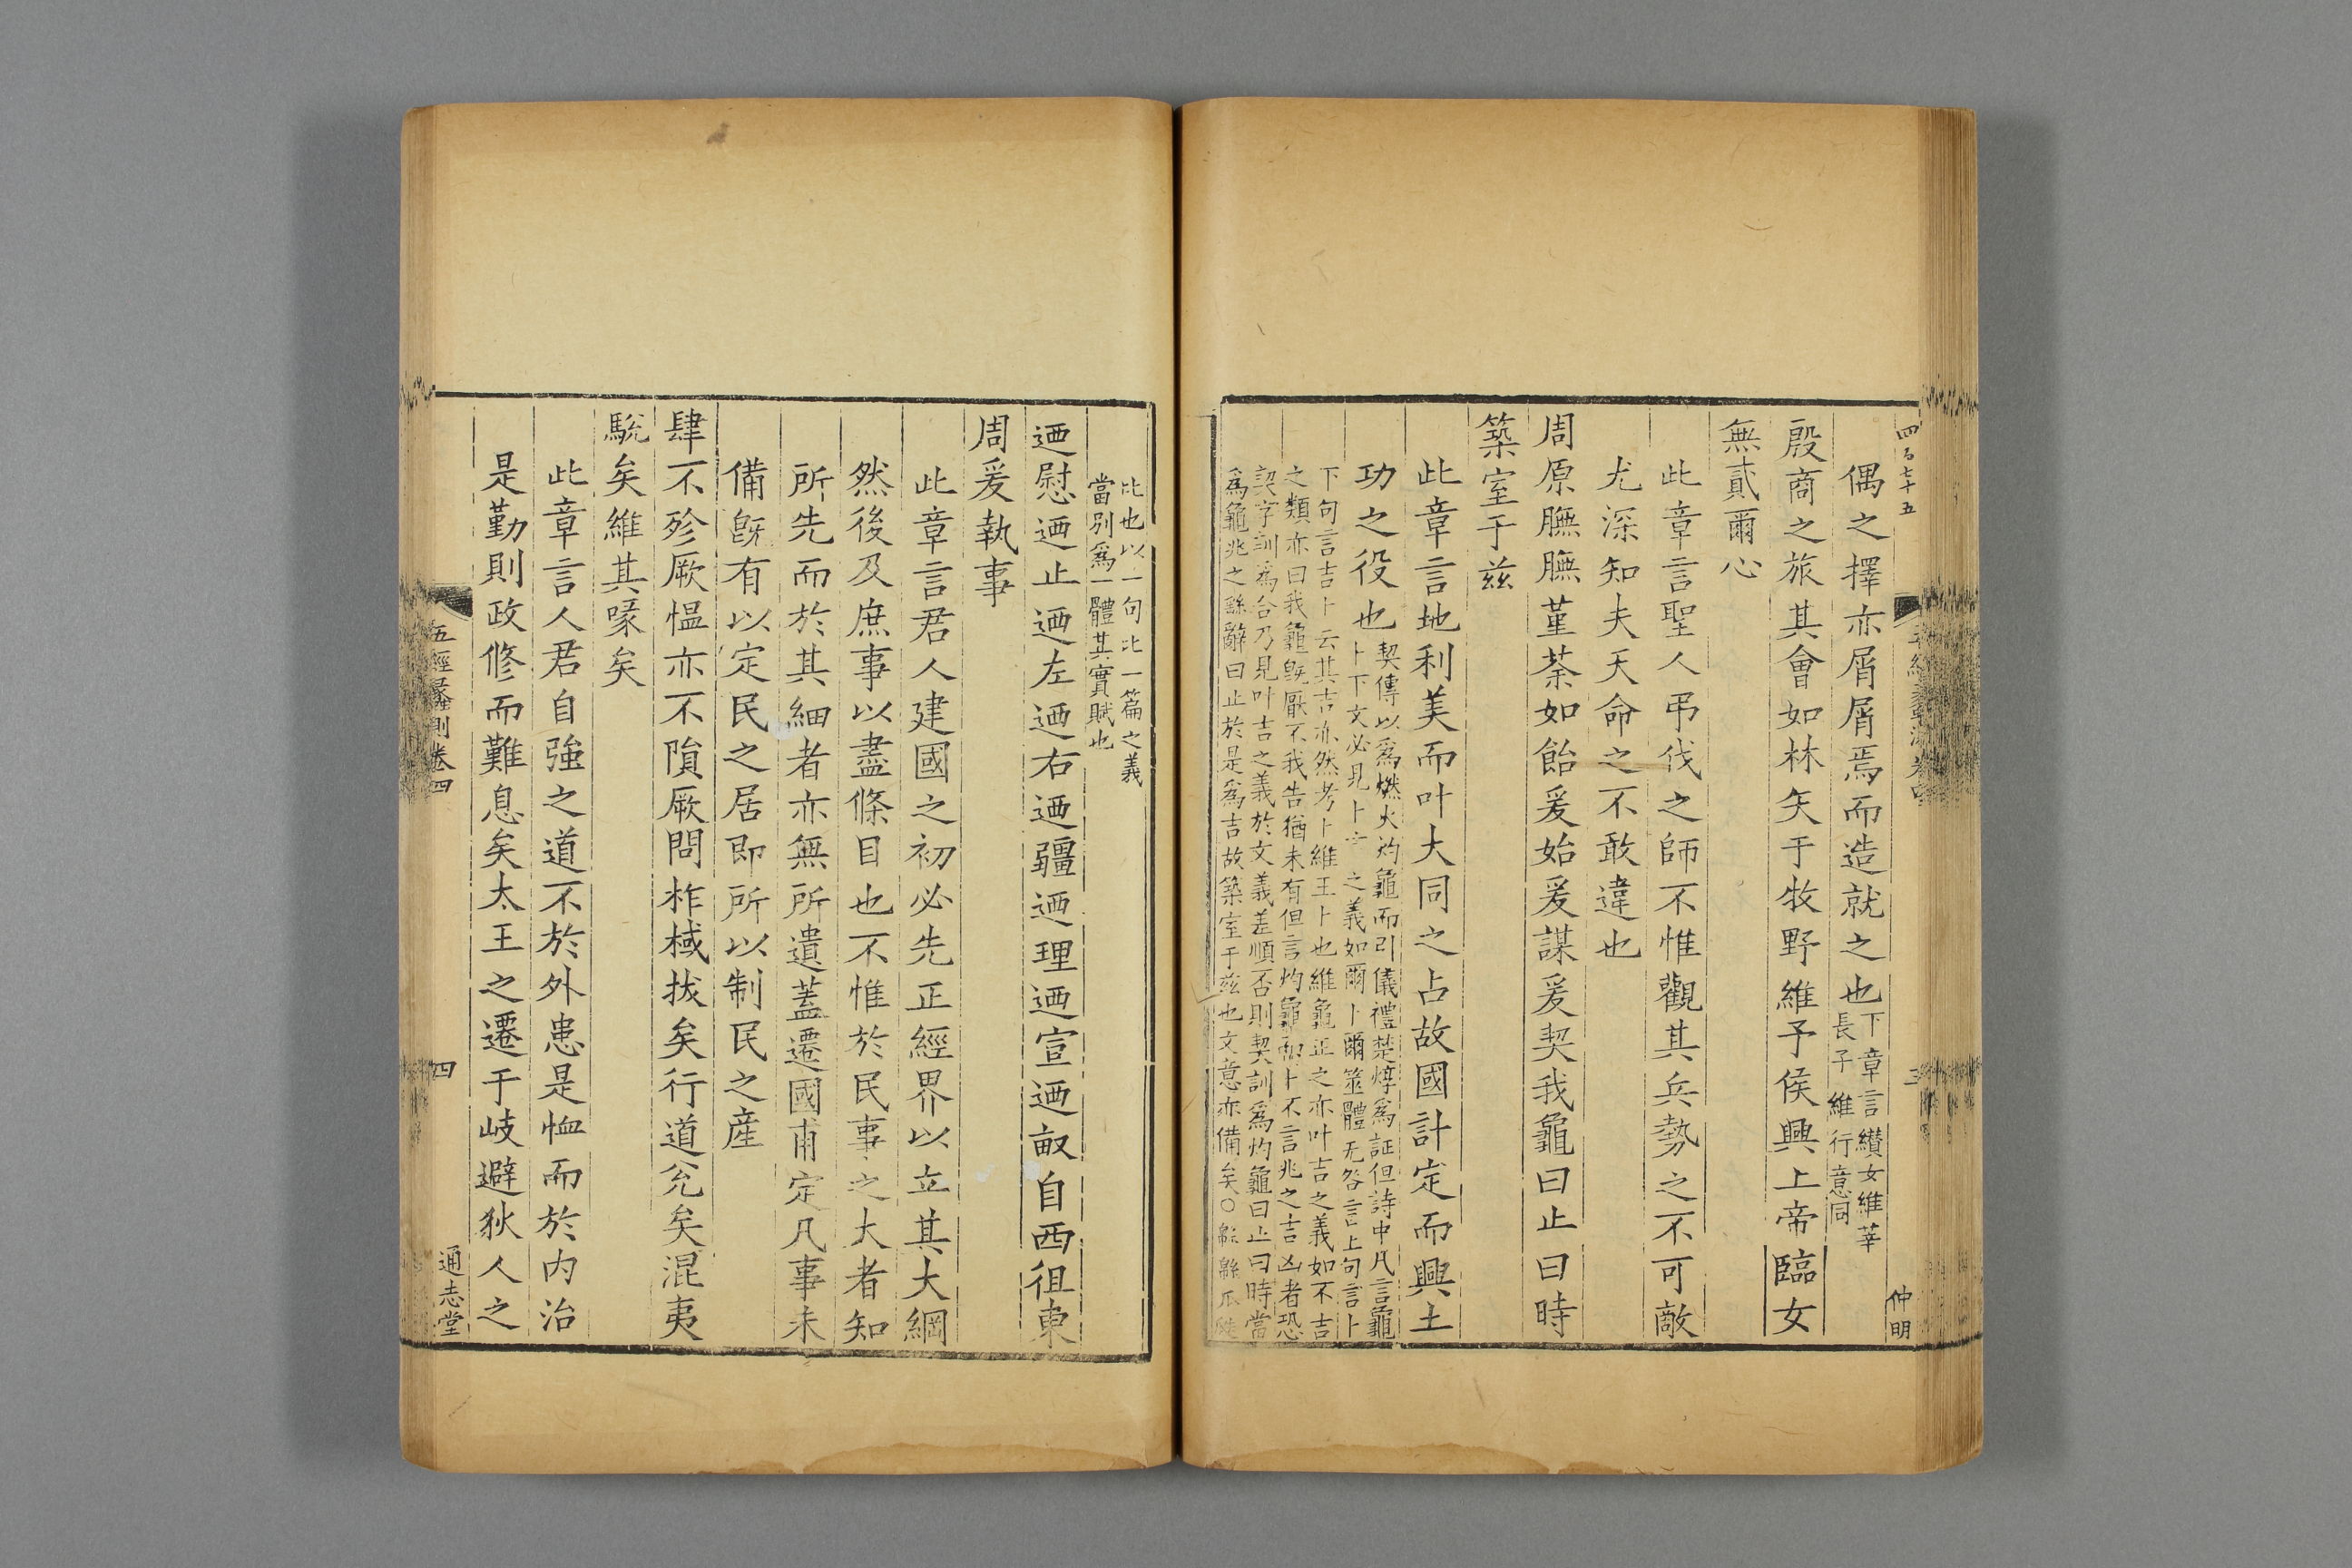 四百七十五
三
仲明
偶之擇亦屑屑焉而造就之也下章言纘女維莘
長子維行意同
殷商之旅其會如林矢于牧野維予侯興上帝臨女
無貳爾心
此章言聖人弔伐之師不惟觀其兵勢之不可敵
尤深知夫天命之不敢違也
周原膴膴菫荼如飴爰始爰謀爰契我龜曰止曰時
築室于茲
此章言地利美而叶大同之占故國計定而興土
功之役也契傳以爲燃火灼龜而引儀禮楚焞爲証但詩中凡言龜
卜下文必見卜之義如爾卜爾筮體无咎言上句言卜
下句言吉卜云其吉亦然考卜維王卜也維龜正之亦叶吉之義如不吉
之類亦曰我龜旣厭不我告猶未有但言灼龜而卜不言兆之吉凶者恐
契字訓爲合乃見叶吉之義於文義差順否則契訓爲灼龜曰止曰時當
爲龜兆之繇辭曰止於是爲吉故築室于茲也文意亦備矣○緜緜瓜瓞
比也以一句比一篇之義
當別爲一體其實賦也
迺慰迺止迺左迺右迺疆迺理迺宣迺畝自西徂東
周爰執事
此章言君人建國之初必先正經界以立其大綱
然後及庶事以盡條目也不惟於民事之大者知
所先而於其細者亦無所遺蓋遷國甫定凡事未
備旣有以定民之居即所以制民之産
肆不殄厥慍亦不隕厥問柞棫拔矣行道兊矣混夷
駾矣維其喙矣
此章言人君自強之道不於外患是恤而於内治
是勤則政修而難息矣太王之遷于岐避狄人之
五經蠡測卷四
四
通志堂